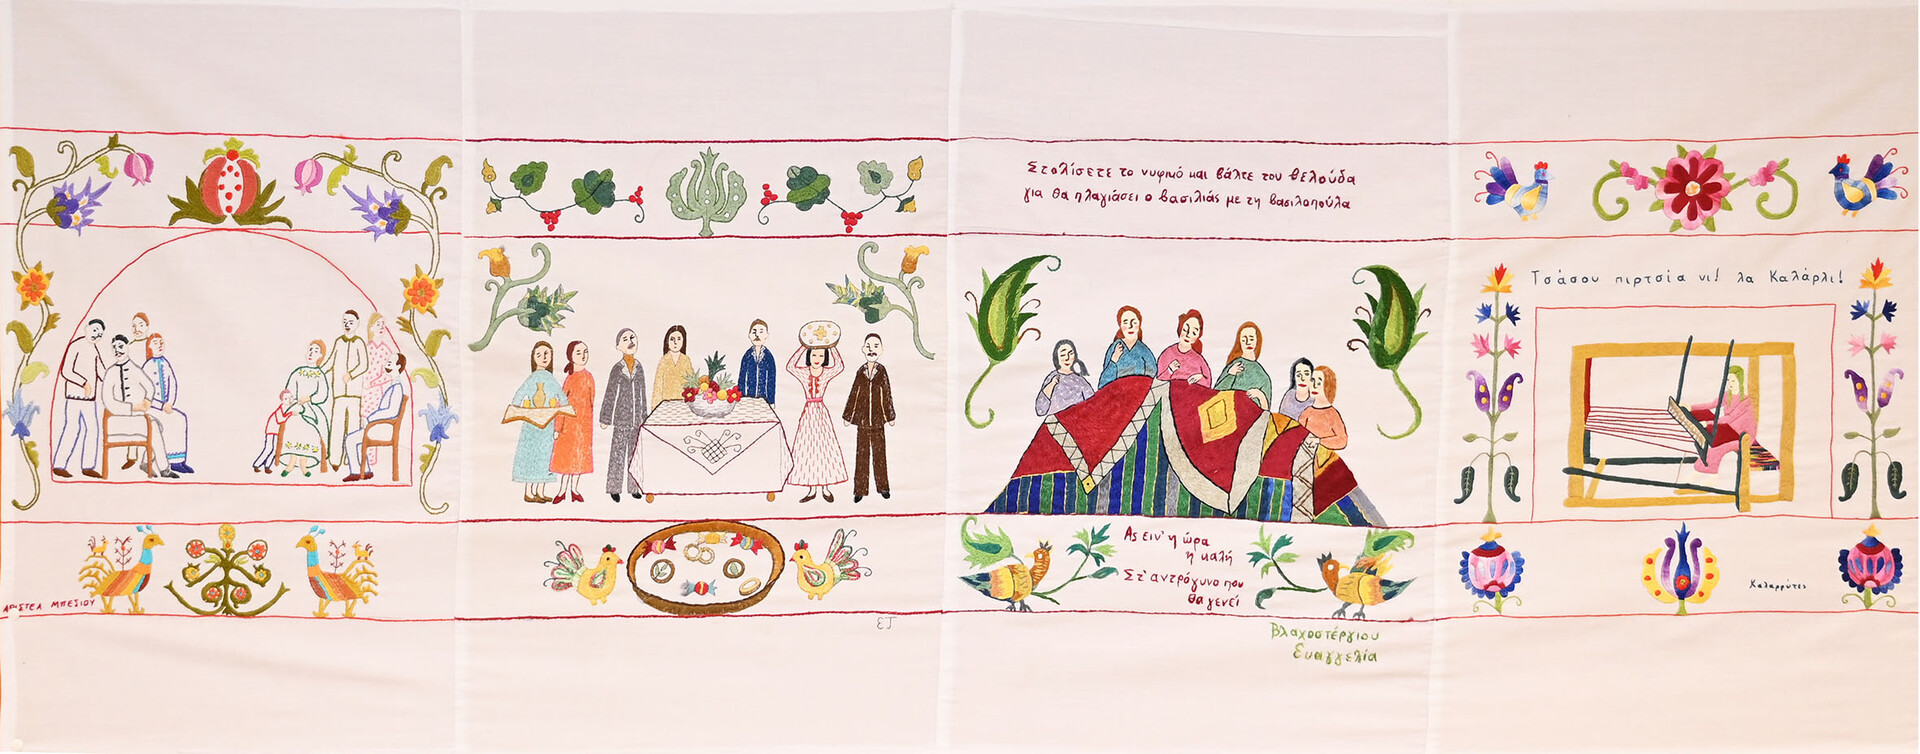 ΑΡΙΣΤΕΑ ΜΠΕΣΙΟΥ
ΕΤ
Στολίσετε το νυφικό και βάλτε του βελούδα
για θα πλαγιάσει ο βασιλιάς με τη βασιλοπούλα
Ας ειν' η ώρα
η καλή
Στ' αντρόγυνο που
θα γενεί
Βλαχοστέργιου
Ευαγγελία
Τσάσου πιρτσία νι! λα Καλάρλι!
Καλαρρύτες